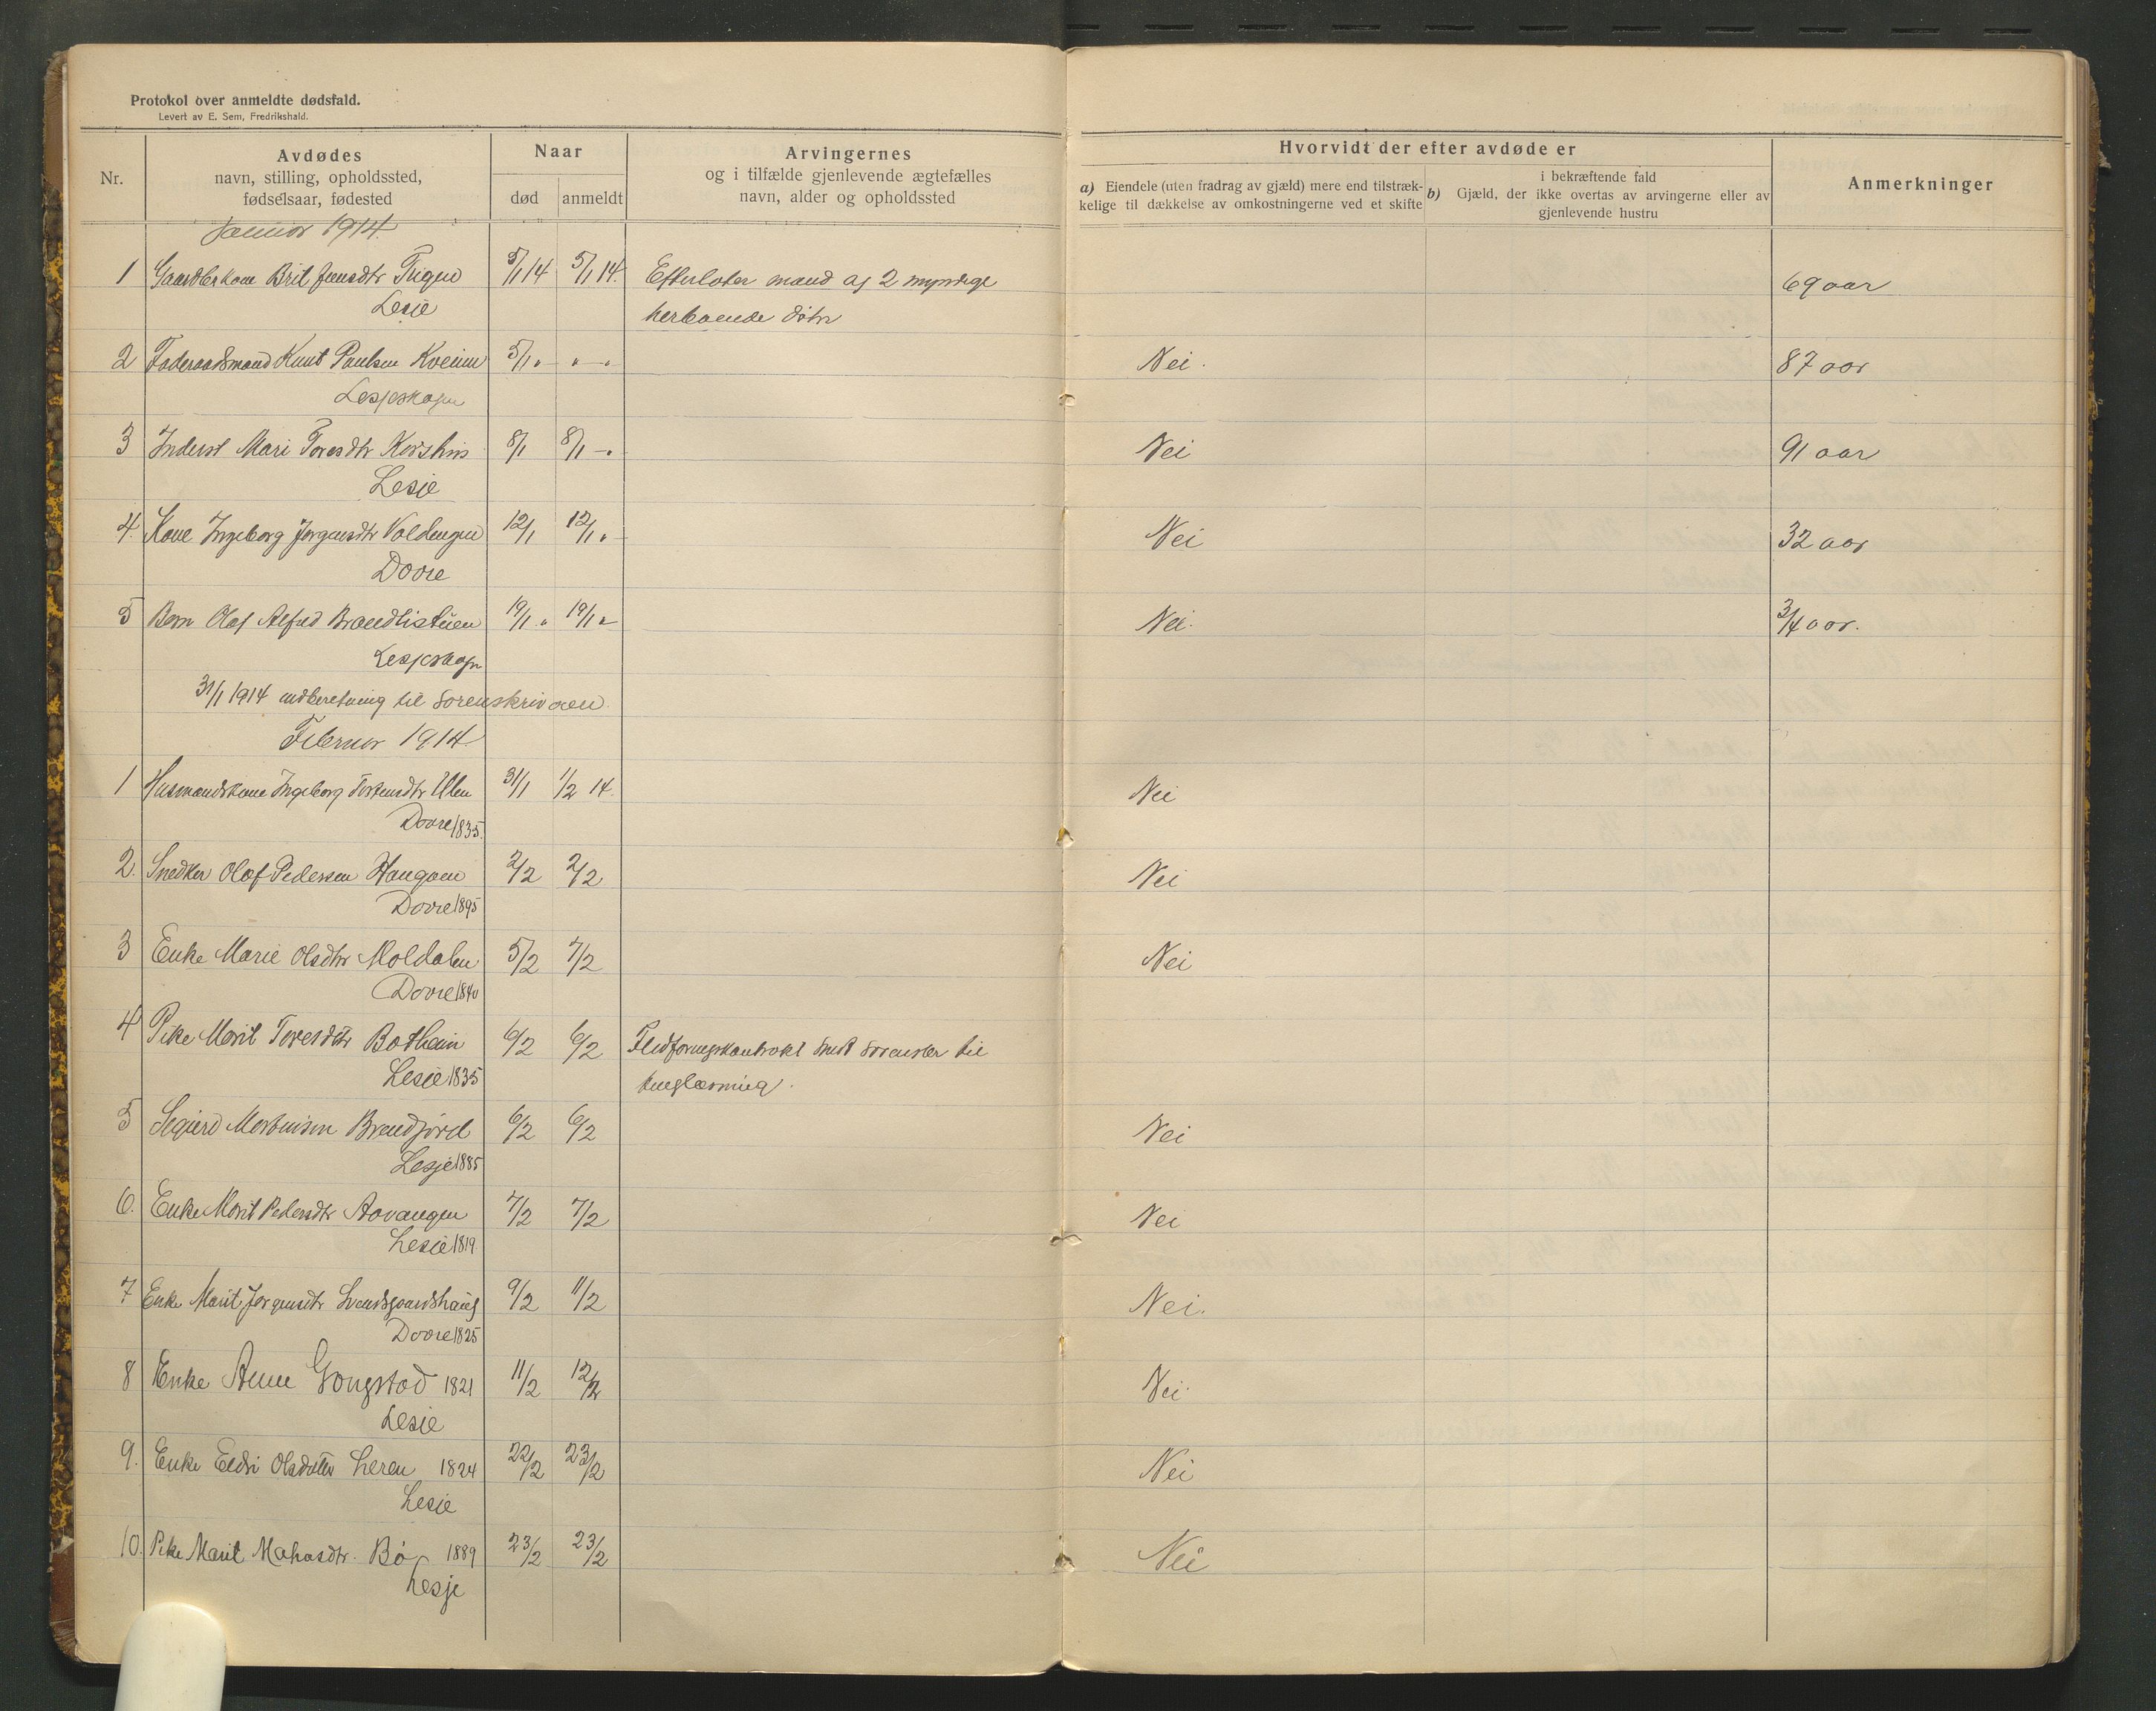 Protokol over anmeldte dødsfald.
Levert av E. Sem, Fredrikshald.
Nr.
Avdødes
navn, stilling, opholdssted,
fødselsaar, fødested
Naar
død
anmeldt
Arvingernes
og i tilfælde gjenlevende ægtefælles
navn, alder og opholdssted
Hvorvidt der efter avdøde er
a) Eiendele (uten fradrag av gjæld) mere end tilstræk-
kelige til dækkelse av omkostningerne ved et skifte
i bekræftende fald
b) Gjæld, der ikke overtas av arvingerne eller av
gjenlevende hustru
Anmerkninger
Januar 1914
1 Brit 5/1 14 5/1 14. Efterlater mand og 2 myndige 69 aar
Lesje herboende døtre
2 Føderaadsmand Knut Paulsen Kveim 5/1 " " - " Nei. 87 aar
Lesjeskogen
3 Inderst Mari Toresdtr 8/1 8/1 - " Nei 91 aar
Lesje
4. Kone Ingeborg Jørgensdtr 12/1 12/1 " Nei 32 aar
Dovre
5 Barn Olaf Alfred Brandlistuen 19/1 " 19/1 " Nei. 3/4 aar.
Lesjeskogn
31/1 1914 indberetning til Sorenskriveren
Februar 1914
1 Husmandskone Ingeborg 31/1 1/2 14. Nei
Dovre 1835.
2. Snedker Olaf Pedersen Haugen 2/2 2/2 Nei
Dovre 1895
3 Enke Marie Olsdtr Moldalen 5/2 7/2 Nei
Dovre 1840
4 Pike Marit Toresdtr Botheim 6/2 6/2 til
Lesje 1835 tinglæsning.
5 Sigurd Mortensen 6/2 6/2 Nei
Lesje 1885
6. Enke Marit Pedersdtr Aavangen 7/2 7/2 Nei
Lesje 1819
7 Enke Marit Jørgensdtr 9/2 11/2 Nei.
Dovre 1825
8 Enke Anne 1821 11/2 12/2 Nei
Lesje
9. Enke Eldri Olsdatter Leren 1824 22/2 23/2 Nei
Lesje
10. Pike Marit Bø 1889 23/2 23/2 Nei
Lesje